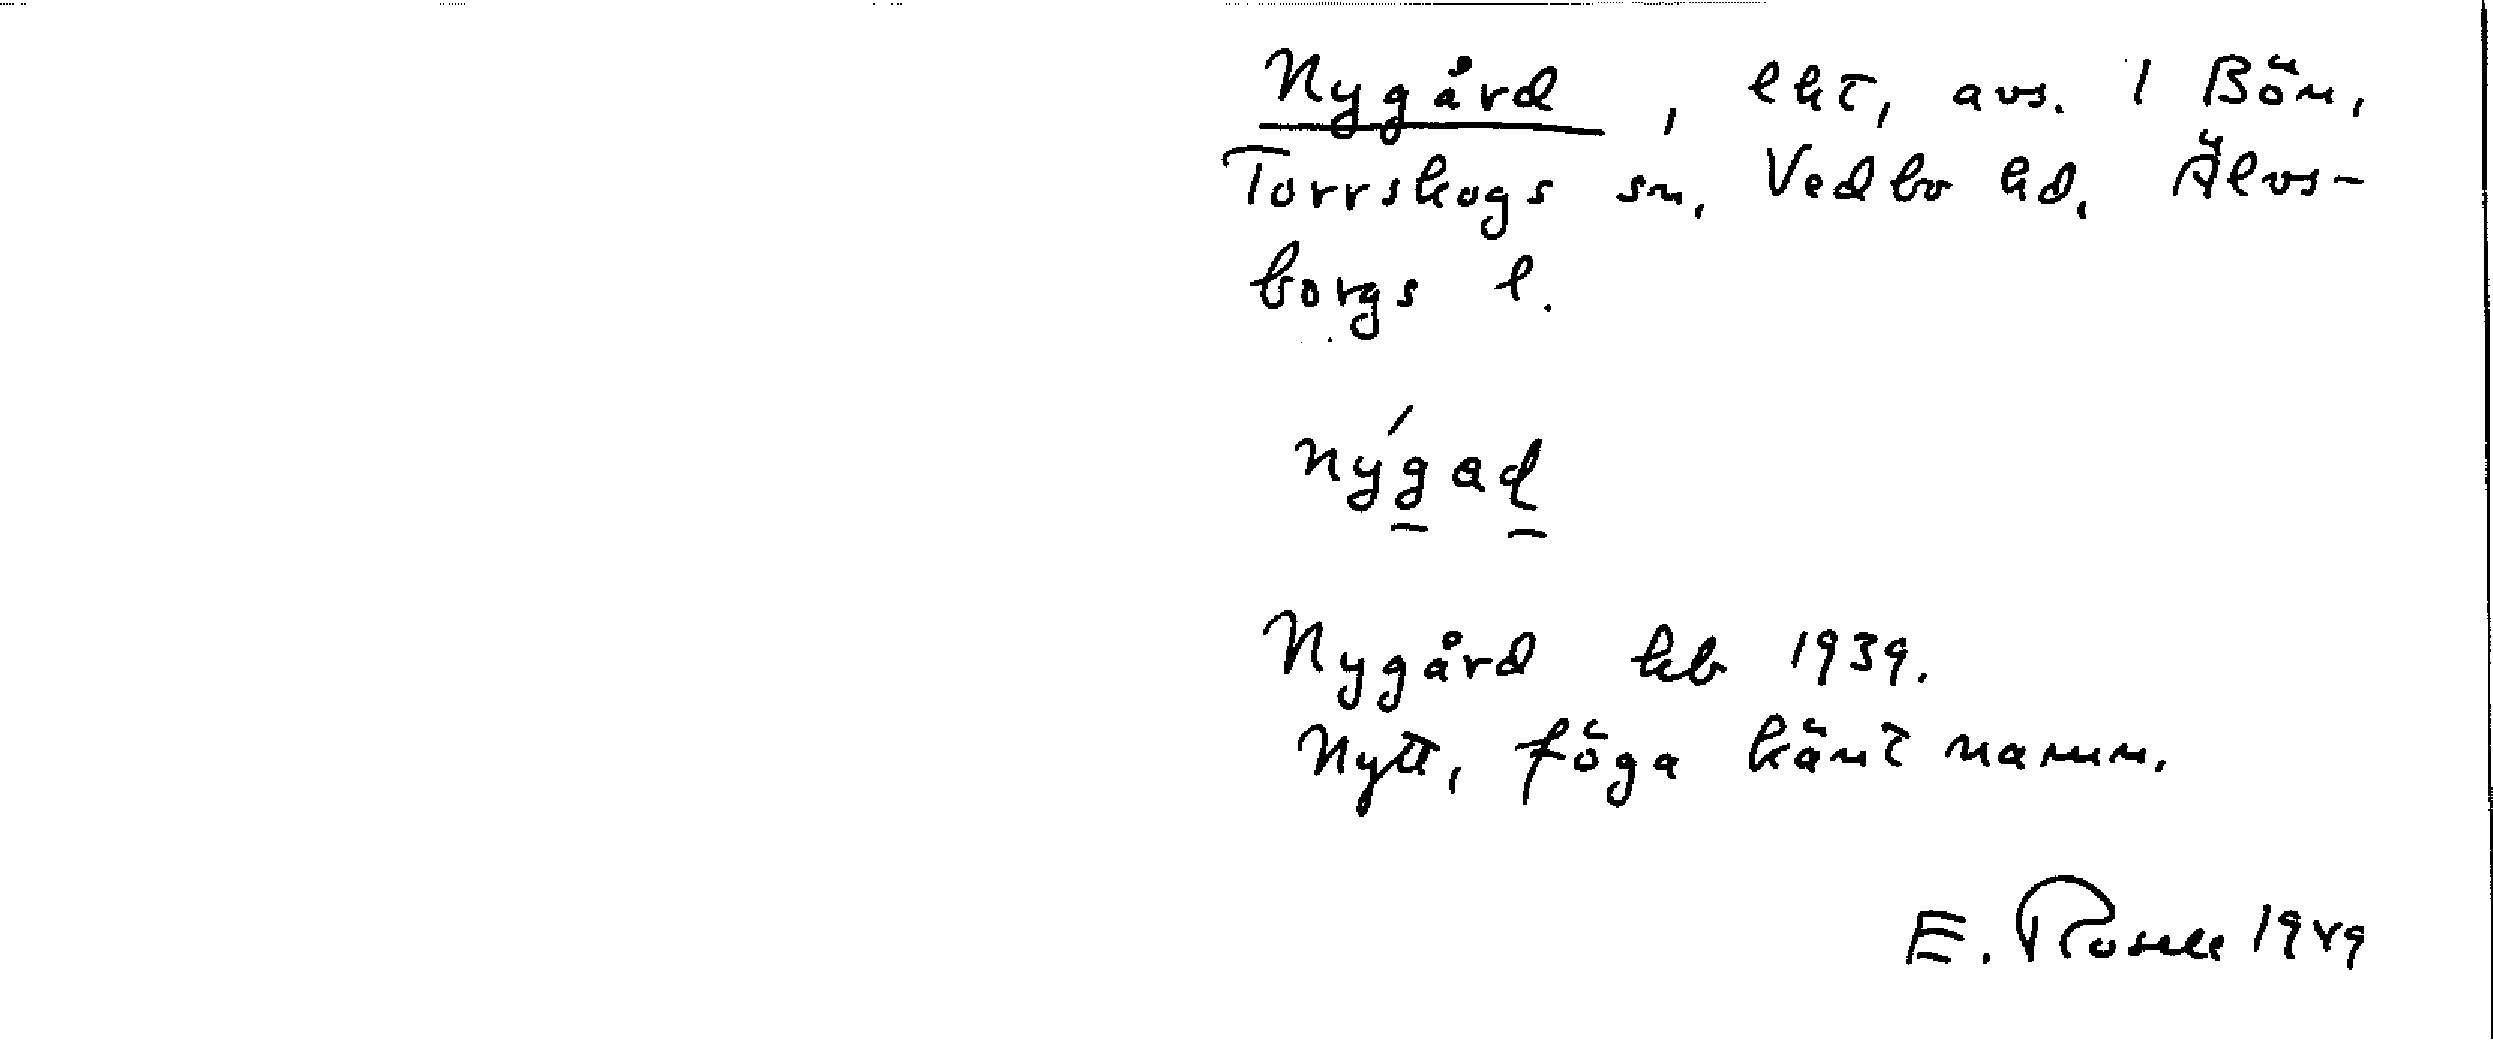 Nygård, lht, avs. 1 Bön,
Torrskogs sn, Vedbo hd, Älvs-
borgs l.
nýgad
Nygård kb 1939.
Nytt, föga känt namn.
E. Rosell 1949